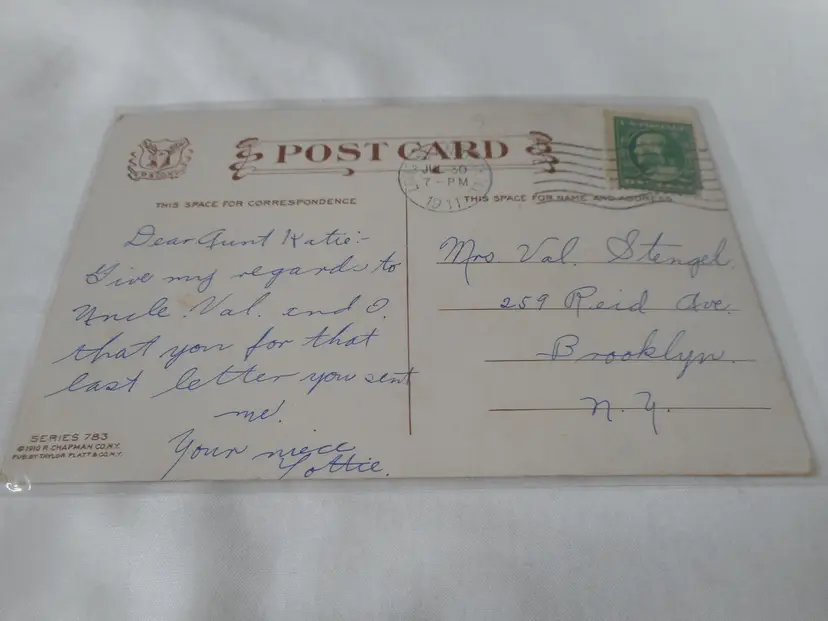 POST CARD
JUL 30
7 - PM
1911
THIS SPACE FOR CORRESPONDENCE
THIS SPACE FOR NAME AND ADDRESS
Dear Aunt Katie:-
Give my regards to
Uncle. Val. and O.
that you for that
last letter you sent
me.
Your niece
Lottie.
Mrs Val. Stengel.
259 Reid Ave.
Brooklyn.
N. Y.
SERIES 783
©1910 R. CHAPMAN CO. N.Y.
PUB. BY TAYLOR PLATT & CO. N.Y.